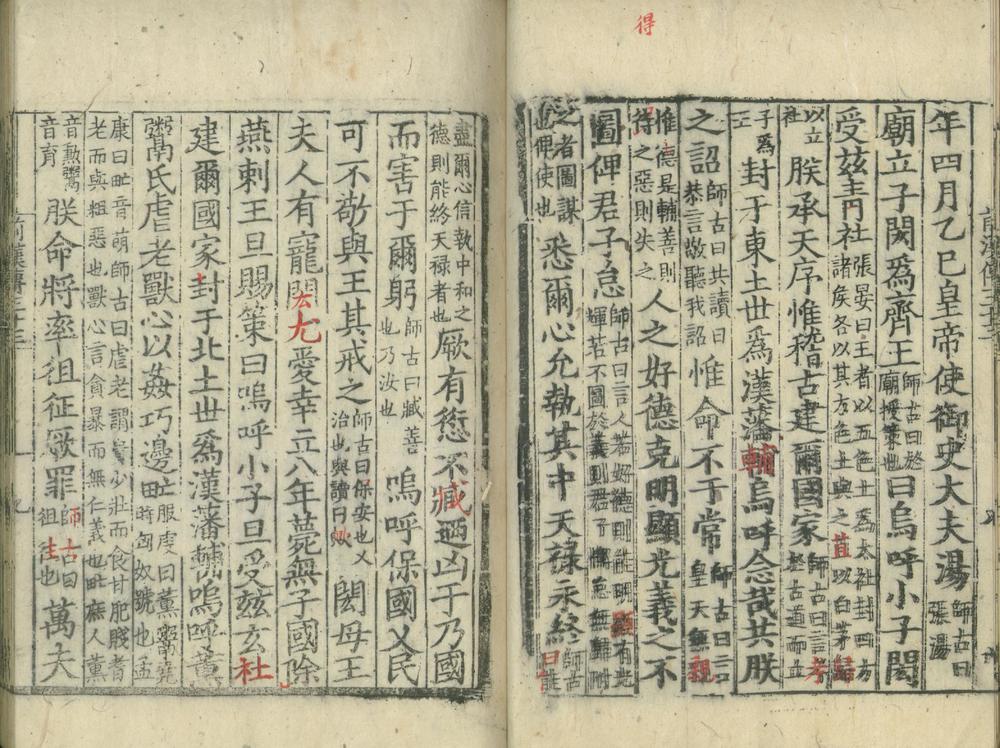 得
年四月乙巳皇帝使御史大夫湯師古曰張湯
廟立子閎爲齊王師古曰於廟授策也曰烏呼小子閎
受茲青社張晏曰王者以五色土爲太社封四方諸矦各以其方色土與之苴以白茅歸
以立社朕承天序惟稽古建爾國家師古曰言考於古道而立
子爲王封于東土世爲漢藩輔烏呼念哉共朕
之詔師古曰共讀曰恭言敬聽我詔惟命不于常師古曰言皇天無親
惟德是輔善則得之惡則失之人之好德克明顯光義之不
圖俾君子怠師古曰言人若好德則能明顯有光輝若不圖於義則君子懈怠無歸附
之者圖謀也俾使也悉爾心允執其中天祿永終師古曰能
盡爾心信執中和之德則能終天祿者也厥有愆不臧迺凶于乃國
而害于爾躬師古曰臧善也乃汝也嗚呼保國乂民
可不敬與王其戒之師古曰保安也乂治也與讀曰歟閎母王
夫人有寵閎尤愛幸立八年薨無子國除
燕剌王旦賜策曰嗚呼小子旦受茲玄社
建爾國家封于北土世爲漢藩輔嗚呼薰
鬻氏虐老獸心以姦巧邊甿服虔曰薰鬻堯時匈奴號也孟
康曰甿音萌師古曰虐老謂貴少壯而食甘肥賤者老而與粗惡也獸心言貪暴而無仁義也甿庶人薰
音勳鬻音育朕命將率徂征厥罪師古曰徂往也萬夫